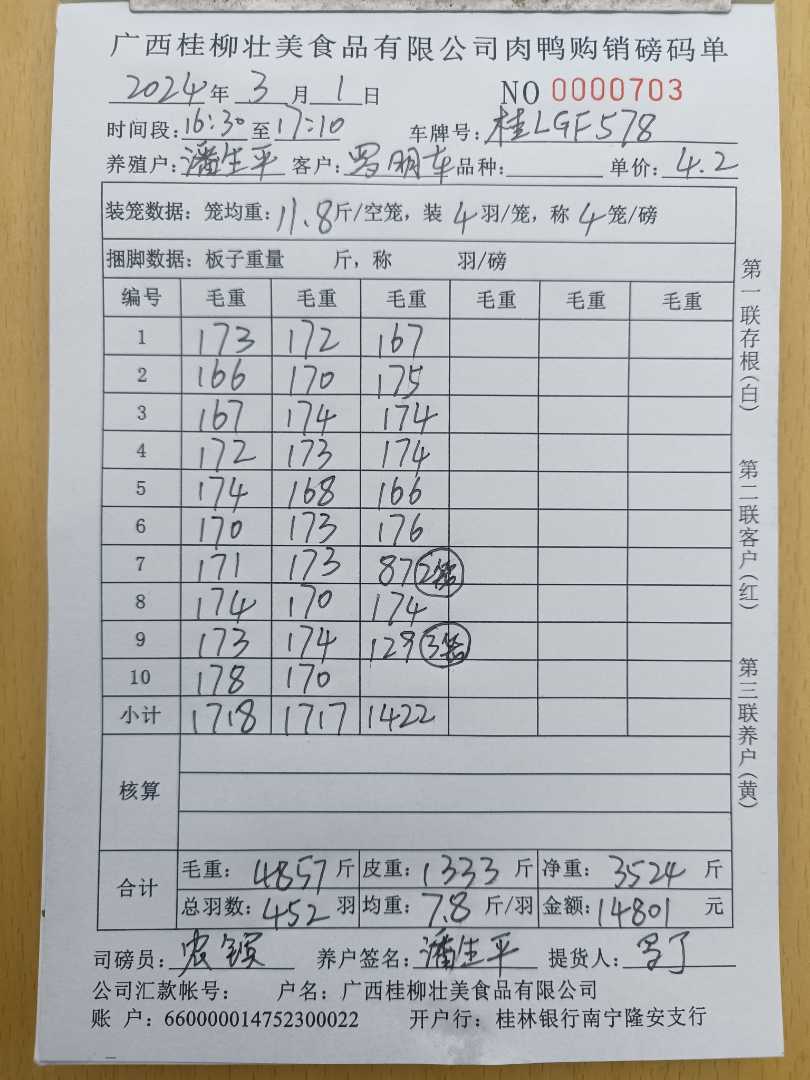 广西桂柳壮美食品有限公司肉鸭购销磅码单
2024年3月1日 NO 0000703
时间段:16:30至17:10 车牌号:桂LGF578
养殖户:潘生平 客户:罗明车 品种: 单价:4.2
装笼数据:笼均重:11.8斤/空笼,装4羽/笼,称4笼/磅
捆脚数据:板子重量 斤,称 羽/磅
编号 毛重 毛重 毛重 毛重 毛重 毛重
1 173 172 167
2 166 170 175
3 167 174 174
4 172 173 174
5 174 168 166
6 170 173 176
7 171 173 87 2笼
8 174 170 174
9 173 174 129 3笼
10 178 170
小计 1718 1717 1422
核算
合计 毛重:4857斤 皮重:1333斤 净重:3524斤
总羽数:452羽 均重:7.8斤/羽 金额:14801元
司磅员:农 养户签名:潘生平 提货人:
公司汇款帐号: 户名:广西桂柳壮美食品有限公司
账 户:660000014752300022 开户行:桂林银行南宁隆安支行
第一联存根(白) 第二联客户(红) 第三联养户(黄)